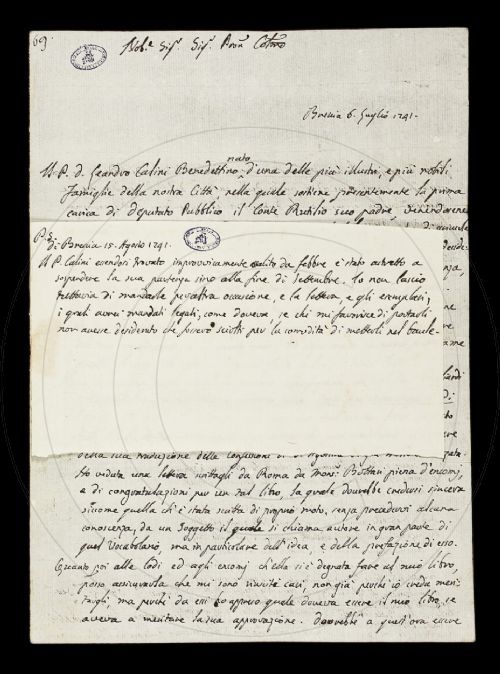 69.
Nob.e Sig.r Sig.r Pron Colmo
Brescia 6. Luglio 1741.
nato
Il P. d. Leandro Calini Benedettino, d'una delle più illustri, e più nobili
famiglie della nostra Città, nella quale sostiene presentemente la prima
carica di deputato Pubblico il Conte Rutilio suo padre,
P.S.
di Brescia 15. Agosto 1741.
Il P. Calini essendosi trovato improvvisamente assalito da febbre è stato astretto a
sospendere la sua partenza sino alla fine di Settembre. Io non lascio
tuttavia di mandarle per altra occasione, e la lettera, e gli esemplari,
i quali avrei mandati legati, come doveva, se chi mi favorisce di portarli
non avesse desiderato che fossero sciolti per la comodità di metterli nel baule.
della sua traduzione delle confessioni di S.
Ho veduta una lettera scrittagli da Roma da Mons.r Bottari piena d'encomj,
e di congratulazioni per un tal libro, la quale dovrebbe credersi sincera
siccome quella ch'è stata scritta di proprio moto, senza precedervi alcuna
conoscenza, da un Soggetto il quale si chiama autore in gran parte di
quel Vocabolario, ma in particolare dell'idea, e della prefazione di esso.
Quanto poi alle lodi ed agli encomj ch'ella si è degnata fare al mio libro,
posso assicurarla che mi sono riusciti cari, non già perchè io creda meri-
targli, ma perchè da essi ho appreso quale doveva essere il mio libro, se
aveva a meritare la sua approvazione. Dovrebbe a quest'ora essere